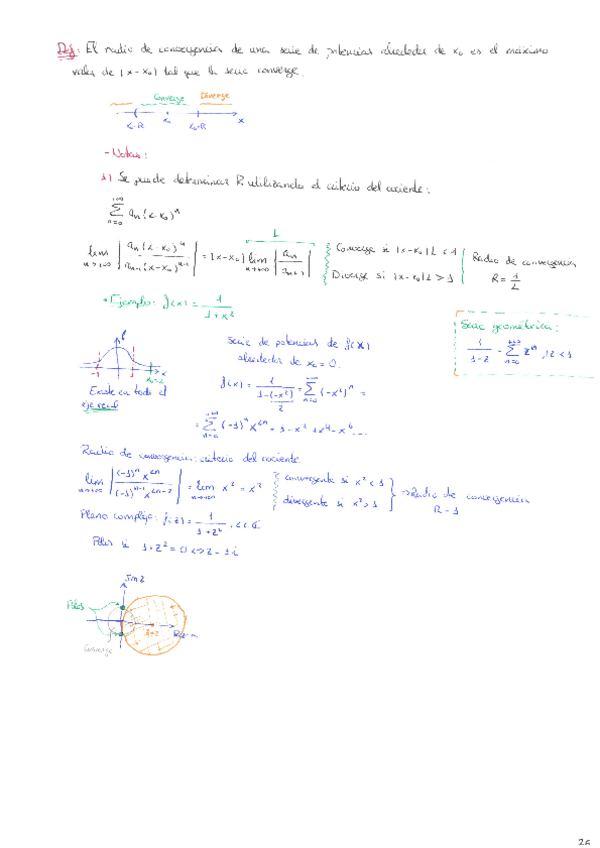 Def: El radio de convergencia de una serie de potencias alrededor de x₀ es el máximo
valor de |x-x₀| tal que la serie converge.
Converge Diverge
x₀-R x₀ x₀+R x
- Notas:
1) Se puede determinar R utilizando el criterio del cociente:
∑_{n=0}^{+∞} aₙ(x-x₀)ⁿ
lim_{n→+∞} |aₙ(x-x₀)ⁿ / aₙ₋₁(x-x₀)ⁿ⁻¹| = |x-x₀| lim_{n→+∞} |aₙ/aₙ₋₁| L { Converge si |x-x₀|L < 1 Diverge si |x-x₀|L > 1 | Radio de convergencia R = 1/L
• Ejemplo: f(x) = 1/(1+x²)
Serie geométrica:
1/(1-z) = ∑_{n=0}^{+∞} zⁿ, |z| < 1
f
-1 1 x₀=2 x
Existe en todo el
eje real
Serie de potencias de f(x)
alrededor de x₀ = 0.
f(x) = 1/(1-(-x²)) = ∑_{n=0}^{+∞} (-x²)ⁿ =
z
= ∑_{n=0}^{+∞} (-1)ⁿ x²ⁿ = 1 - x² + x⁴ - x⁶ ...
Radio de convergencia: criterio del cociente
lim_{n→+∞} |(-1)ⁿ x²ⁿ / (-1)ⁿ⁻¹ x²ⁿ⁻²| = lim_{n→+∞} x² = x² { convergente si x² < 1 divergente si x² > 1 } → Radio de convergencia R = 1
Plano complejo: f(z) = 1/(1+z²), z ∈ ℂ
Polos si 1+z² = 0 ⇔ z = ±i
Im z
Polos
x=2
Re
Converge
26